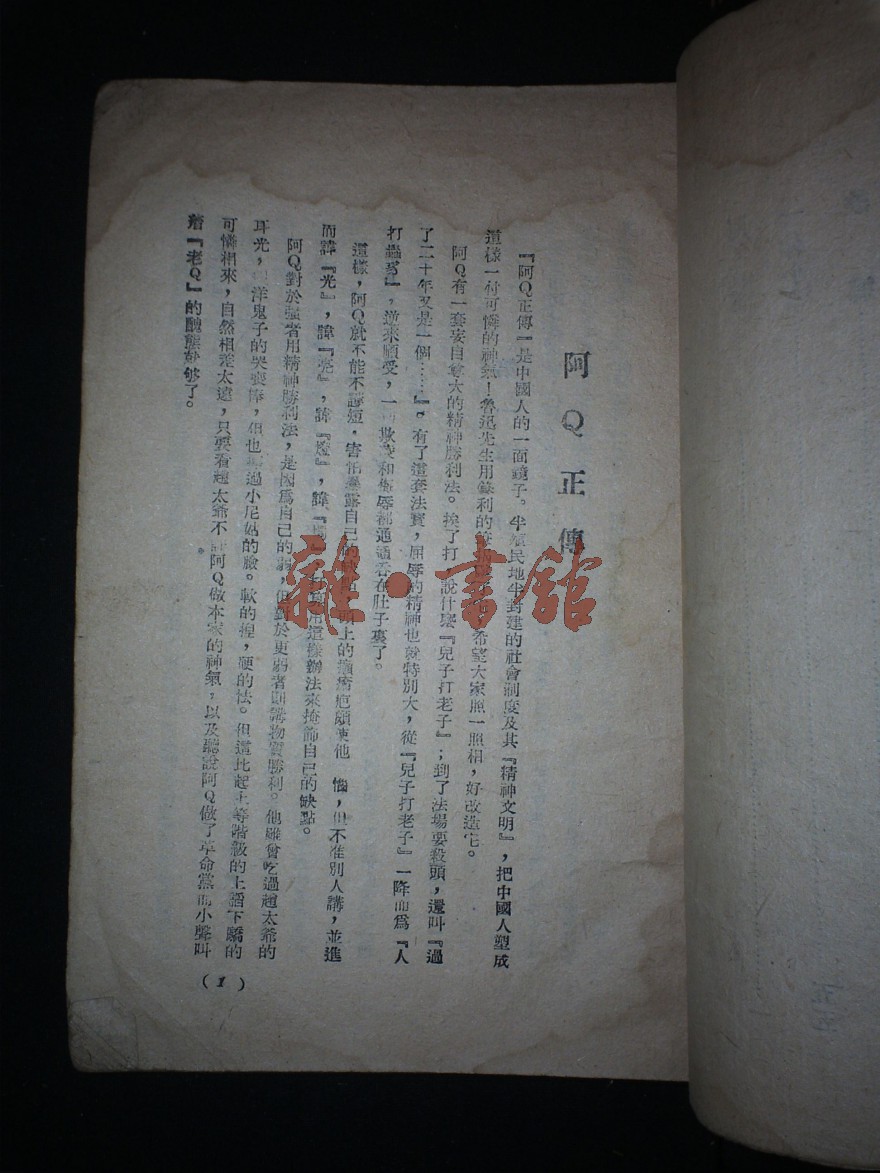 阿Q正傳
『阿Q正傳』是中國人的一面鏡子。半殖民地半封建的社會制度及其『精神文明』，把中國人塑成
這樣一付可憐的神氣！魯迅先生用鋒利的筆 希望大家照一照相，好改造它。
阿Q有一套妄自尊大的精神勝利法。挨了打 說什麼『兒子打老子』；到了法場要殺頭，還叫『過
了二十年又是一個……』。有了這套法寶，屈辱的精神也就特別大，從『兒子打老子』一降而為『人
打蟲豸』，逆來順受，一切 和侮辱都通通吞在肚子裏了。
這樣，阿Q就不能不護短，害怕暴露自己的 頭上的癩瘡疤 他 惱，但不准別人講，並進
而諱『光』，諱『亮』，諱『燈』，諱『燭』 用這樣辦法來掩飾自己的缺點。
阿Q對於强者用精神勝利法，是因爲自己的弱，但對於更弱者則講物質勝利。他雖會吃過趙太爺的
耳光， 洋鬼子的哭喪棒，但也 過小尼姑的臉。軟的捏，硬的怯。但這比起上等階級的上諂下驕的
可憐相來，自然相差太遠，只要看趙太爺不 阿Q做本家的神氣，以及聽說阿Q做了革命黨而小聲叫
着『老Q』的醜態就够了。
(1)
雜·書館